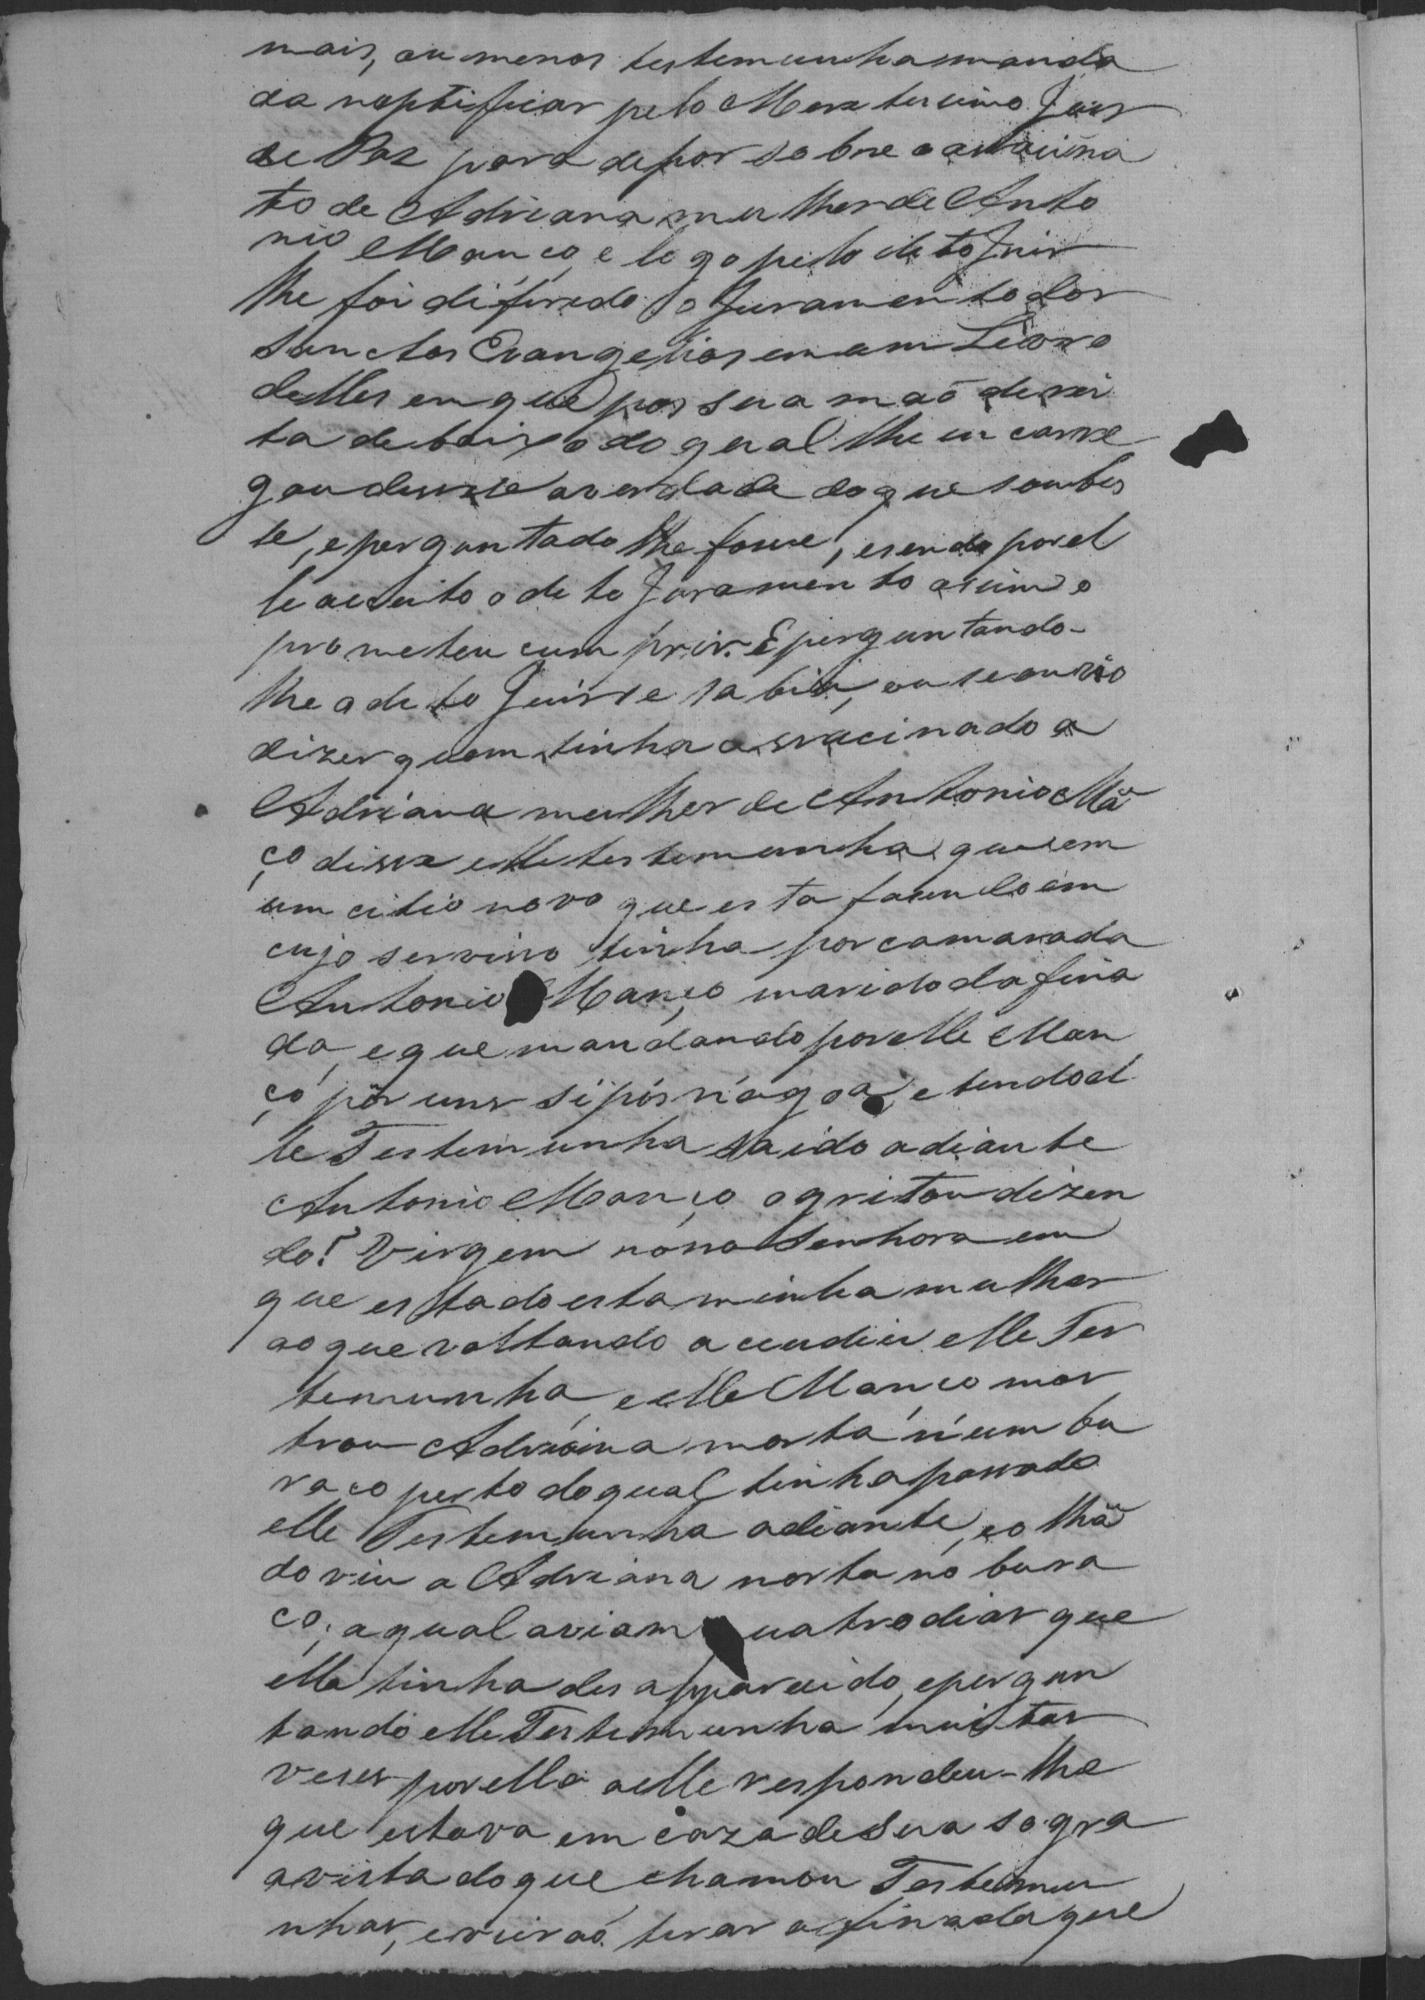 mais, ou menos testemunha manda
da noptificar pelo Meretissimo Juis
de Pas para depor sobre o assacina
to de Adriana mulher de Anto
nio Manço, e logo pelo dito Juis
lhe foi diferido o Juramento dos
Sanctos Evangelios em um Livro
delles em que pos sua maõ derei
ta debaixo do qual lhe encarre
gou dissesse a verdade do que soubes
se, e perguntado lhe fosse, e sendo por el
le aceito o dito Juramento assim o
prometeu cumprir. E perguntando-
lhe o dito Juis se sabia, ou se ouvio
dizer quem tinha assacinado a
Adriana mulher de Antonio Mã
ço disse elle testemunha que em
um citio novo que esta fasendo em
cujo serviso tinha por camarada
Antonio Manço marido da fina
da, e que mandando por elle Man
ço pôr uns sipós n'agoa, e tendo el
le Testemunha saido adiante
Antonio Manço o gritou dizen
do! Virgem nossa Senhora em
que estado esta minha mulher
ao que voltando acudiu elle Tes
temunha, e elle Manço mos
trou Adriana morta n'um bu
raco perto do qual tinha passado
elle Testemunha adiante, e olhã
do viu a Adriana morta no bura
co, a qual aviam quatro dias que
ella tinha desapparecido, e pergun
tando elle Testemunha muitas
veses por ella a elle respondeu-lhe
que estava em caza de sua sogra
a vista do que chamou Testemu
nhas, e viraõ tirar a finada que